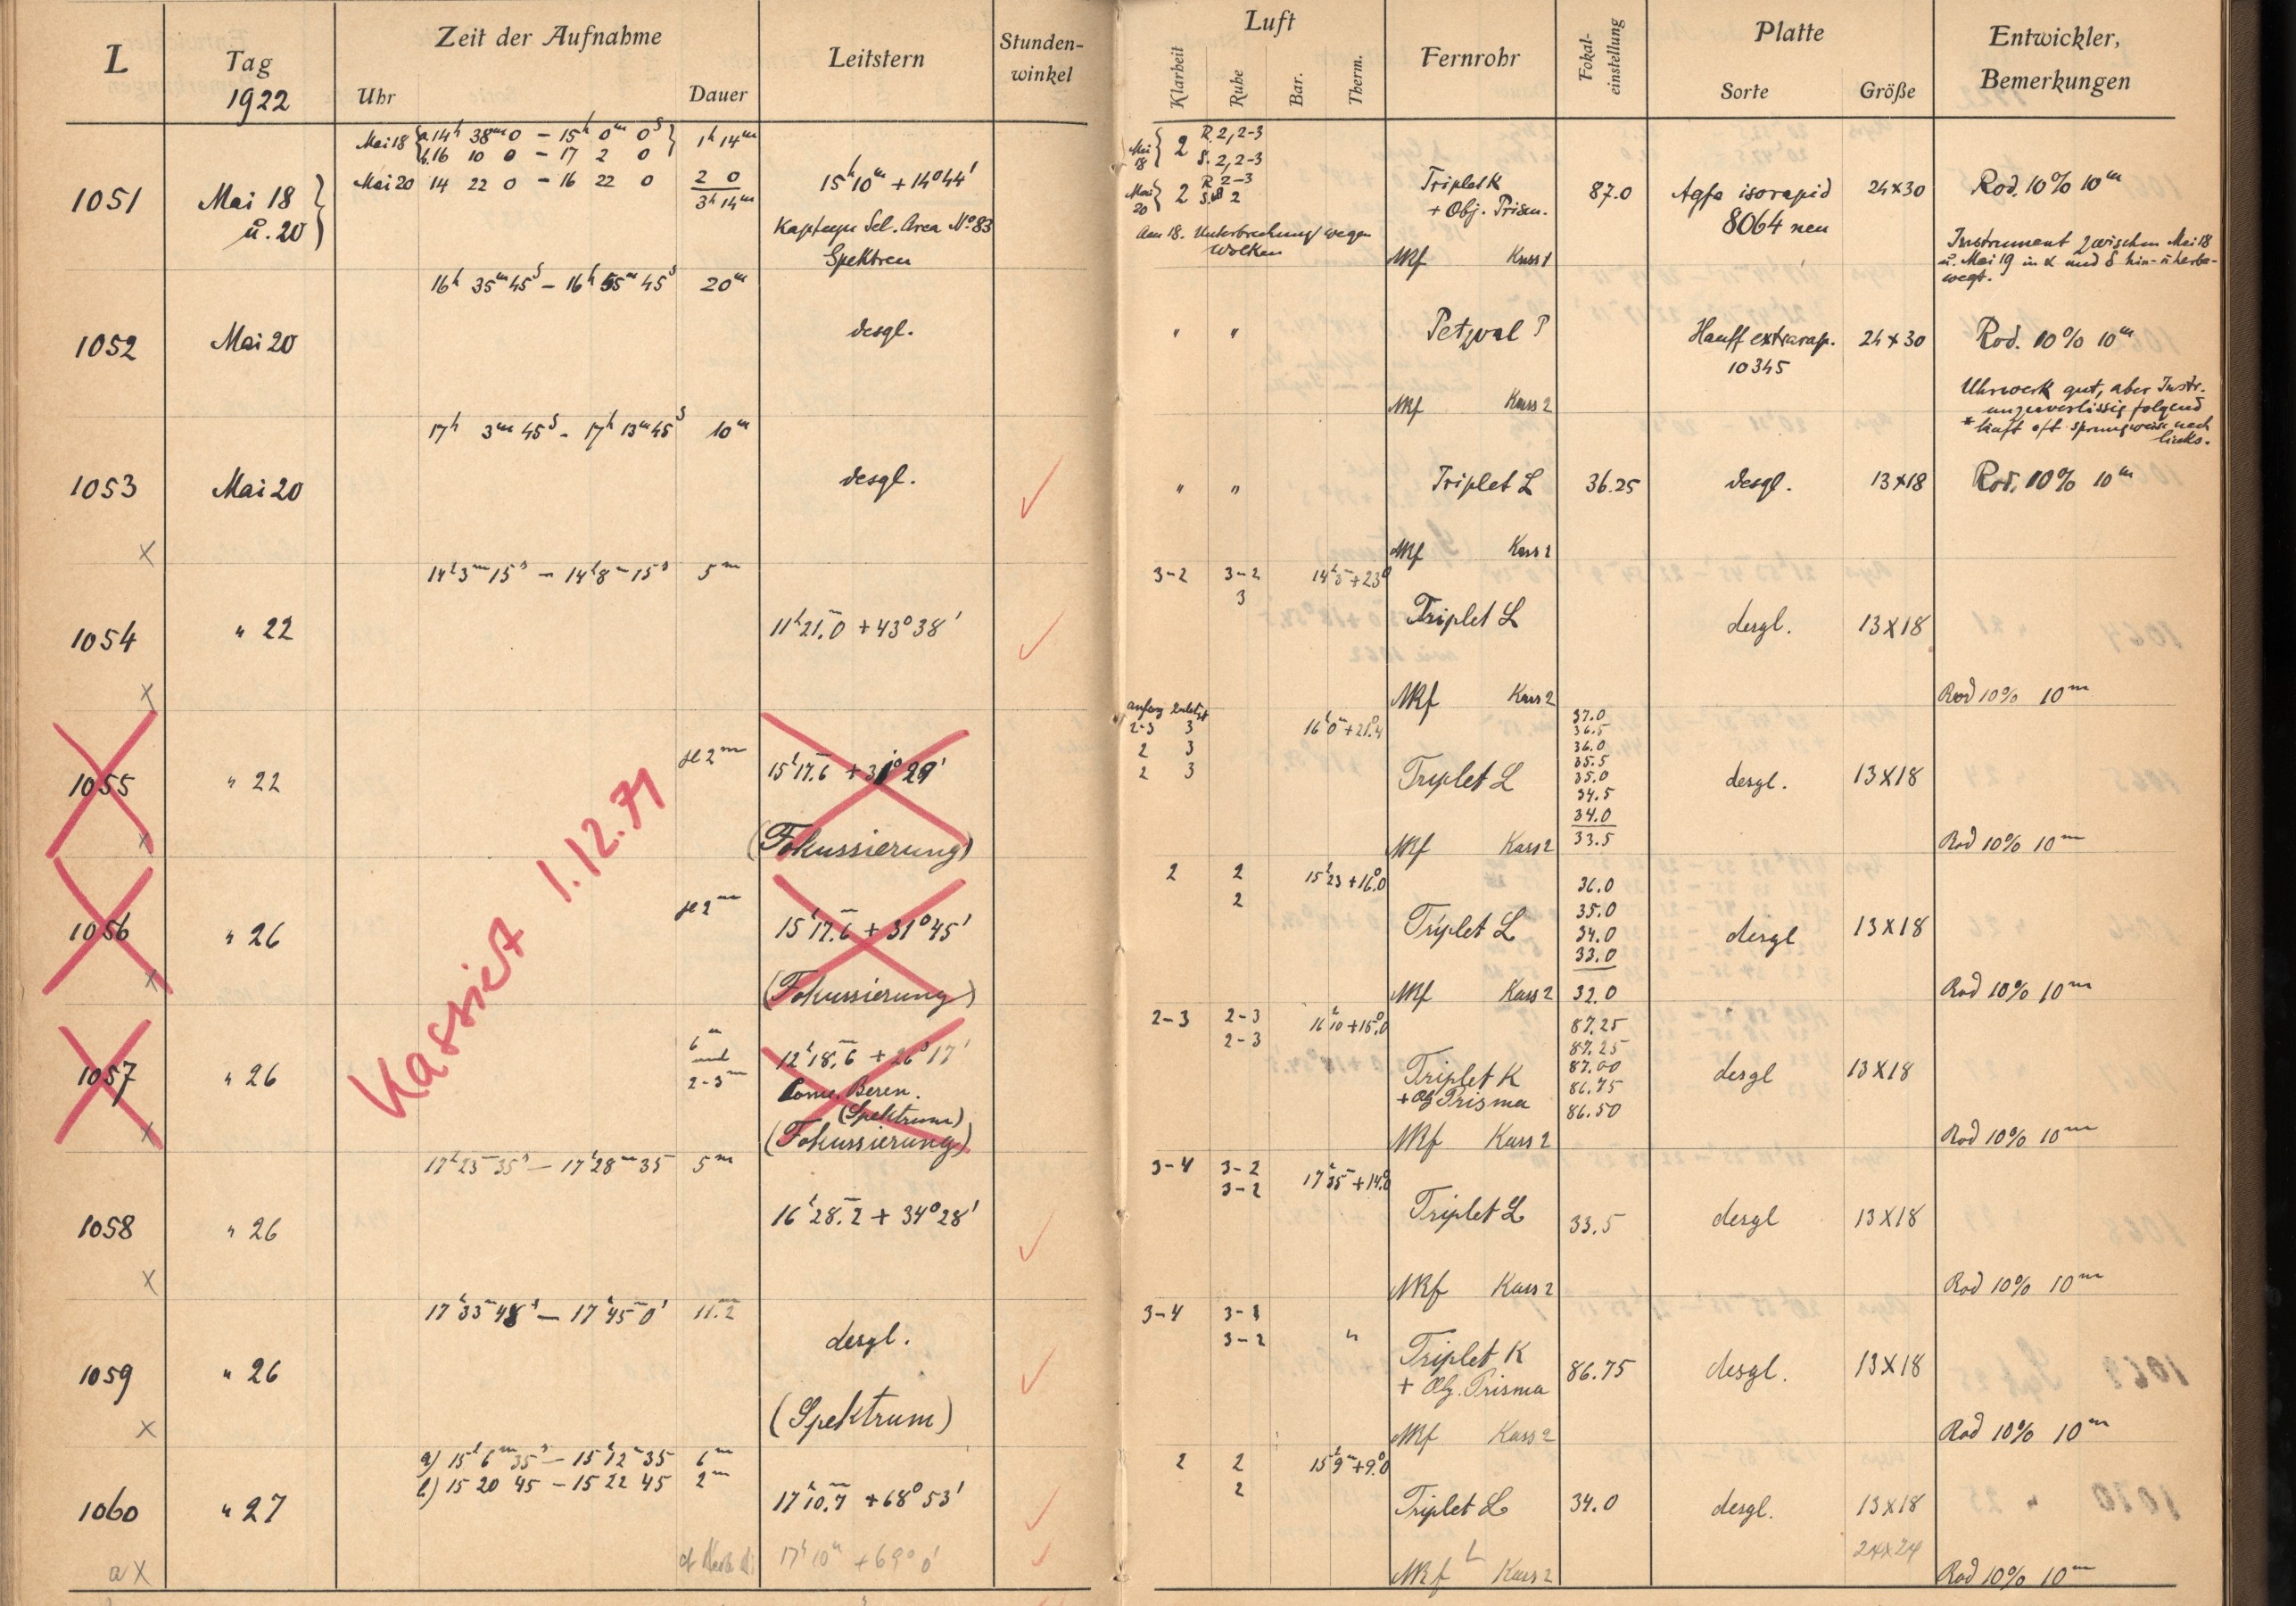 L Tag 1922 Zeit der Aufnahme Uhr Dauer Leitstern Stunden-winkel Luft Klarheit Ruhe Bar. Therm. Fernrohr Fokal-einstellung Platte Sorte Größe Entwickler, Bemerkungen
Mai 18 { a 14h 38m 0 – 15h 0m 0s } 1h 14m
b. 16 10 0 – 17 2 0
Mai 20 14 22 0 – 16 22 0 2 0
3h 14m
1051 Mai 18 u. 20 }
15h 10m + 14° 44'
Kapteyn Sel. Area No 83
Spektren
Mai 18 } 2 R. 2, 2-3
S. 2, 2-3
Mai 20 } 2 R 2-3
S. 2
Am 18. Unterbrechung wegen
Wolken
Triplet K
+ Obj. Prism.
Kass 1
87.0
Agfa isorapid
8064 neu
24x30
Rod. 10% 10m
Instrument zwischen Mai 18
u. Mai 19 in α und δ hin- u herbe-
wegt.
16h 35m 45s – 16h 55m 45s 20m
1052 Mai 20 desgl. " " Petzval P Hauff extrarap. 24x30 Rod. 10% 10m
10345
Kass 2
Uhrwerk gut, aber Instr.
unzuverlässig folgend
* läuft oft sprungweise nach
links.
17h 3m 45s – 17h 13m 45s 10m
1053 Mai 20 desgl. " " Triplet L 36.25 desgl. 13x18 Rod. 10% 10m
x Kass 2
14h 3m 15s – 14h 8m 15s 5m 3-2 3-2 14h 5m +23°
3
1054 " 22 11h 21m.0 + 43° 38' Triplet L desgl. 13x18
x Kass 2 Rod 10% 10m
anfang zuletzt
2-3 3
2 3
2 3
16h 0m + 21°.4
37.0
36.5
36.0
35.5
35.0
34.5
34.0
33.5
1055 " 22 je 2m 15h 17m.6 + 31° 29' Triplet L desgl. 13x18
(Fokussierung)
x Kass 2 Rod 10% 10m
Kassiert 1.12.71
2 2 15h 23 + 16°.0
2
36.0
35.0
34.0
33.0
32.0
1056 " 26 je 2m 15h 17m.6 + 31° 45' Triplet L desgl 13x18
(Fokussierung)
x Kass 2 Rod 10% 10m
2-3 2-3 16h 10 + 15°.0
2-3
87.25
87.25
87.00
86.75
86.50
1057 " 26 6m und 2-3m 12h 18m.6 + 26° 17'
Coma Beren.
(Spektrum)
(Fokussierung)
Triplet K
+ Obj Prisma
desgl 13x18
x Kass 2 Rod 10% 10m
17h 23m 35s – 17h 28m 35 5m 3-4 3-2 17h 35m + 14°.0
3-2
1058 " 26 16h 28m.2 + 34° 28' Triplet L 33.5 desgl 13x18
x Kass 2 Rod 10% 10m
17h 33m 48s – 17h 45m 0s 11m.2 3-4
3-2 "
1059 " 26 desgl.
(Spektrum)
Triplet K
+ Obj. Prisma
86.75 desgl. 13x18
x Kass 2 Rod 10% 10m
a) 15h 6m 35s – 15h 12m 35 6m 2 2 15h 9m + 9°.0
b) 15 20 45 – 15 22 45 2m 2
1060 " 27 17h 10m.7 + 68° 53' Triplet L 34.0 desgl. 13x18
24x24
a x 17h 10m + 69° 0' L Kass 2 Rod 10% 10m